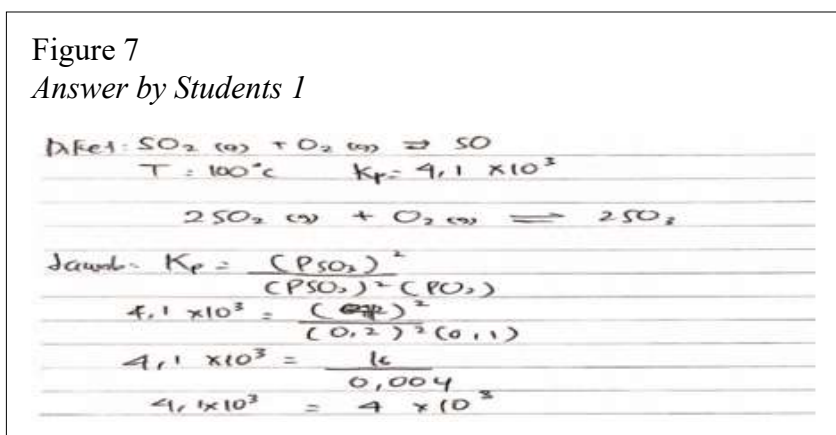 Figure 7
Answer by Students 1
Diket: SO₂ (g) + O₂ (g) ⇌ SO
T : 100°C Kp = 4,1 ×10³
2SO₂ (g) + O₂ (g) ⇌ 2SO₃
Jawab: Kp = (PSO₃)²
(PSO₂)² (PO₂)
4,1 ×10³ = ( )²
(0,2)² (0,1)
4,1 ×10³ =
0,004
4,1×10³ = 4 ×10³